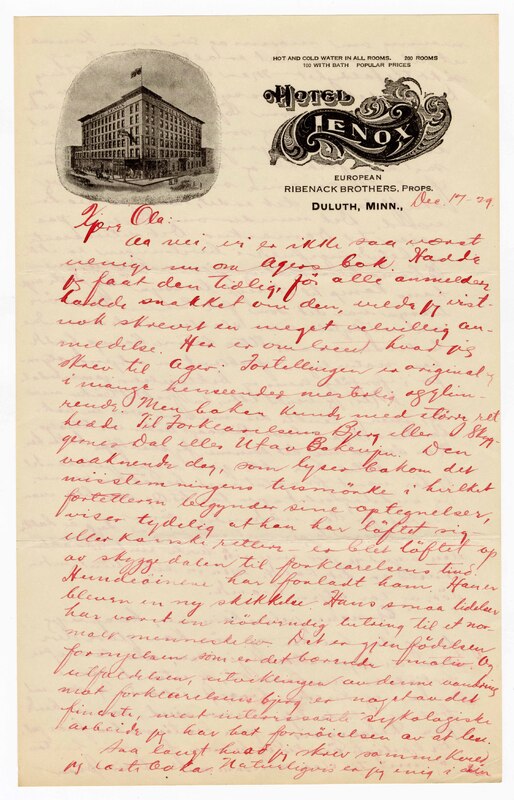 HOT AND COLD WATER IN ALL ROOMS. 200 ROOMS
100 WITH BATH POPULAR PRICES
HOTEL
LENOX
EUROPEAN
RIBENACK BROTHERS, PROPS.
DULUTH, MINN., Dec. 17-29
Kjære Ola:
Aa nei, vi er ikke saa værst
uenige nu om Agers bok. Hadde
jeg faat den tidlig, før alle anmeldere
hadde snakket om den, vilde jeg vist-
nok skrevet en meget velvillig an-
meldelse. Her er omtrent hvad jeg
skrev til Ager: Fortellingen er original og
i mange henseender merkelig
Men boken kunde med større ret
hedde Til Forklarelsens Bjerg eller Skyg-
gernes Dal eller Ut av Den
vaaknende dag, som lyser bakom det
misstemningens tusmörke i hvilket
fortelleren begynder sine optegnelser,
viser tydelig at han har löftet sig
eller kanske rettere - er blet löftet op
av skyggedalen til forklarelsens
Hundeöinene har forladt ham. Han er
bleven en ny skikkelse. Hans smaa lidelser
har voret en nödvendig lutring til et nor-
malt menneskeliv. Det er gjenfödelsen og
fornyelsen som er det bærende motiv. Og
utfoldelsen, utviklingen av denne vandring
mot forklarelsens bjerg er noget av det
fineste, mest interessante sykologiske
arbeide jeg har hat fornöielsen av at læse.
Saa langt hvad jeg skrev samme kveld
jeg læste boka. Naturligvis er jeg enig i din